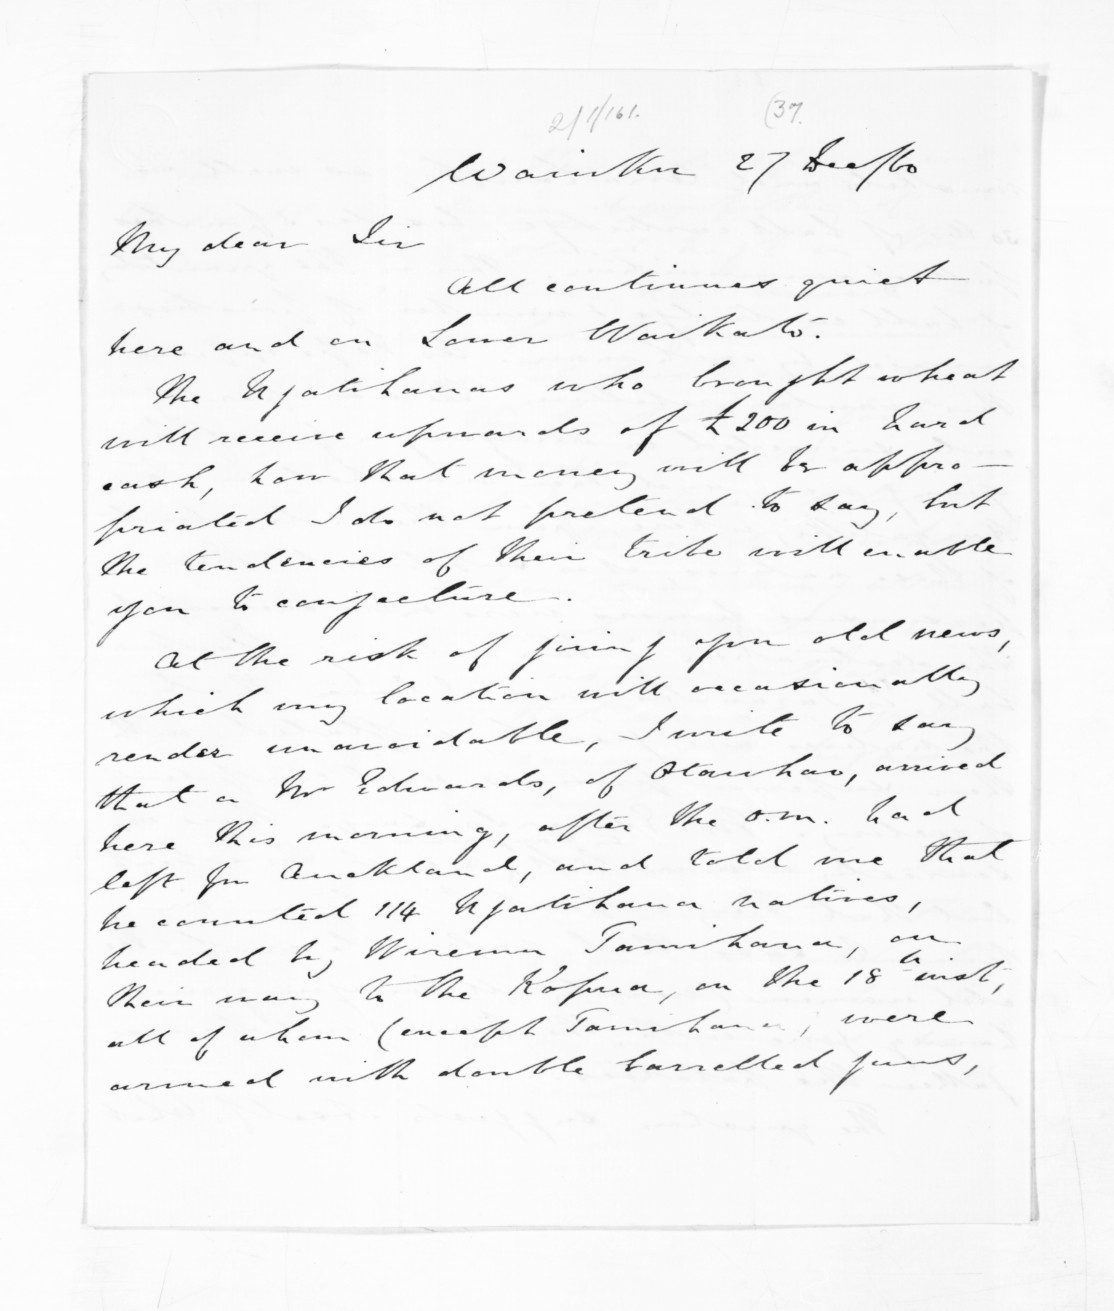 2/1/61.
(37.
Waiuku 27 Dec/60
My dear Sir
All continues quiet
here and on Lower Waikato.
The Ngatihauas who brought wheat
will receive upwards of £200 in hard
cash, how that money will be appro-
priated I do not pretend to say, but
the tendencies of their tribe will enable
you to conjecture.
At the risk of giving you old news,
which my location will occasionally
render unavoidable, I write to say
that a Mr Edwards, of Otawhao, arrived
here this morning, after the o.m. had
left for Auckland, and told me that
he counted 114 Ngatihaua natives,
headed by Wiremu Tamihana, on
their way to the Kopua, on the 18th inst,
all of whom (except Tamihana, were
armed with double barrelled guns,